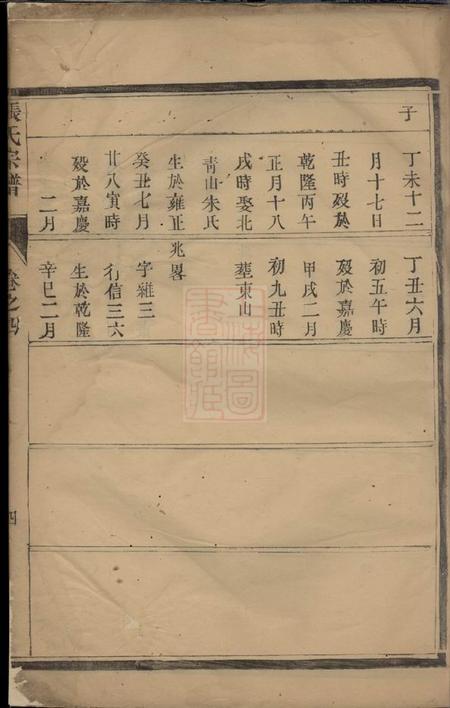 子
丁未十二
月十七日
丑時歿於
乾隆丙午
正月十八
戌時娶北
靑山朱氏
生於雍正
癸丑七月
廿八寅時
歿於嘉慶
二月
丁丑六月
初五午時
歿於嘉慶
甲戌二月
初九丑時
葬東山
兆畧
字維三
行信三六
生於乾隆
辛巳二月
張氏宗譜
卷之四
四
上海圖書館藏